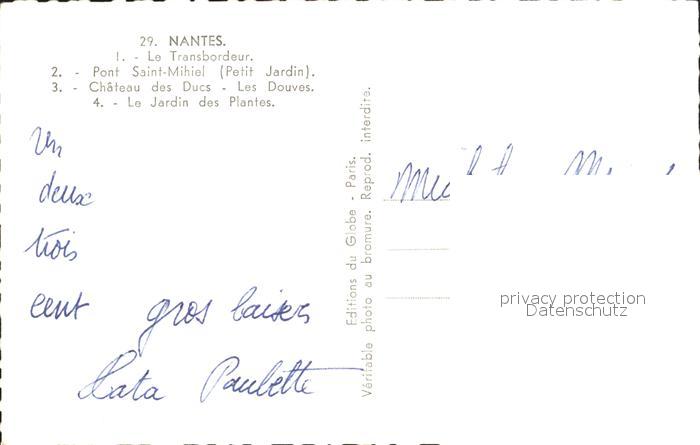 29. NANTES.
1. - Le Transbordeur.
2. - Pont Saint-Mihiel (Petit Jardin).
3. - Château des Ducs - Les Douves.
4. - Le Jardin des Plantes.
un
deux
trois
cent gros baisers
Tata Paulette
Editions du Globe - Paris.
Véritable photo au bromure. Reprod. interdite.
privacy protection
Datenschutz